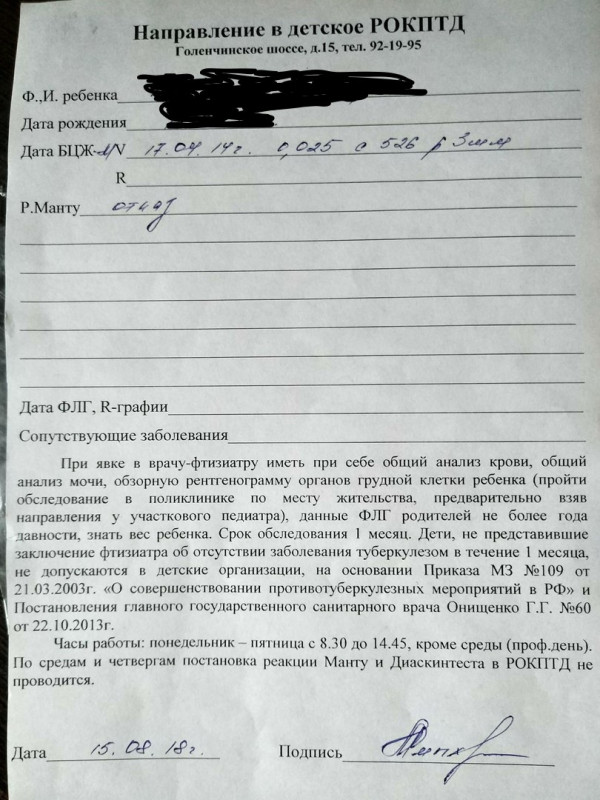 Направление в детское РОКПТД
Голенчинское шоссе, д.15, тел. 92-19-95
Ф.,И. ребенка
Дата рождения
Дата БЦЖ-М V 17.04.14г. 0,025 с 526 р 3мм
R
Р.Манту отказ
Дата ФЛГ, R-графии
Сопутствующие заболевания
При явке в врачу-фтизиатру иметь при себе общий анализ крови, общий
анализ мочи, обзорную рентгенограмму органов грудной клетки ребенка (пройти
обследование в поликлинике по месту жительства, предварительно взяв
направления у участкового педиатра), данные ФЛГ родителей не более года
давности, знать вес ребенка. Срок обследования 1 месяц. Дети, не представившие
заключение фтизиатра об отсутствии заболевания туберкулезом в течение 1 месяца,
не допускаются в детские организации, на основании Приказа МЗ №109 от
21.03.2003г. «О совершенствовании противотуберкулезных мероприятий в РФ» и
Постановления главного государственного санитарного врача Онищенко Г.Г. №60
от 22.10.2013г.
Часы работы: понедельник – пятница с 8.30 до 14.45, кроме среды (проф.день).
По средам и четвергам постановка реакции Манту и Диаскинтеста в РОКПТД не
проводится.
Дата 15.08.18г. Подпись